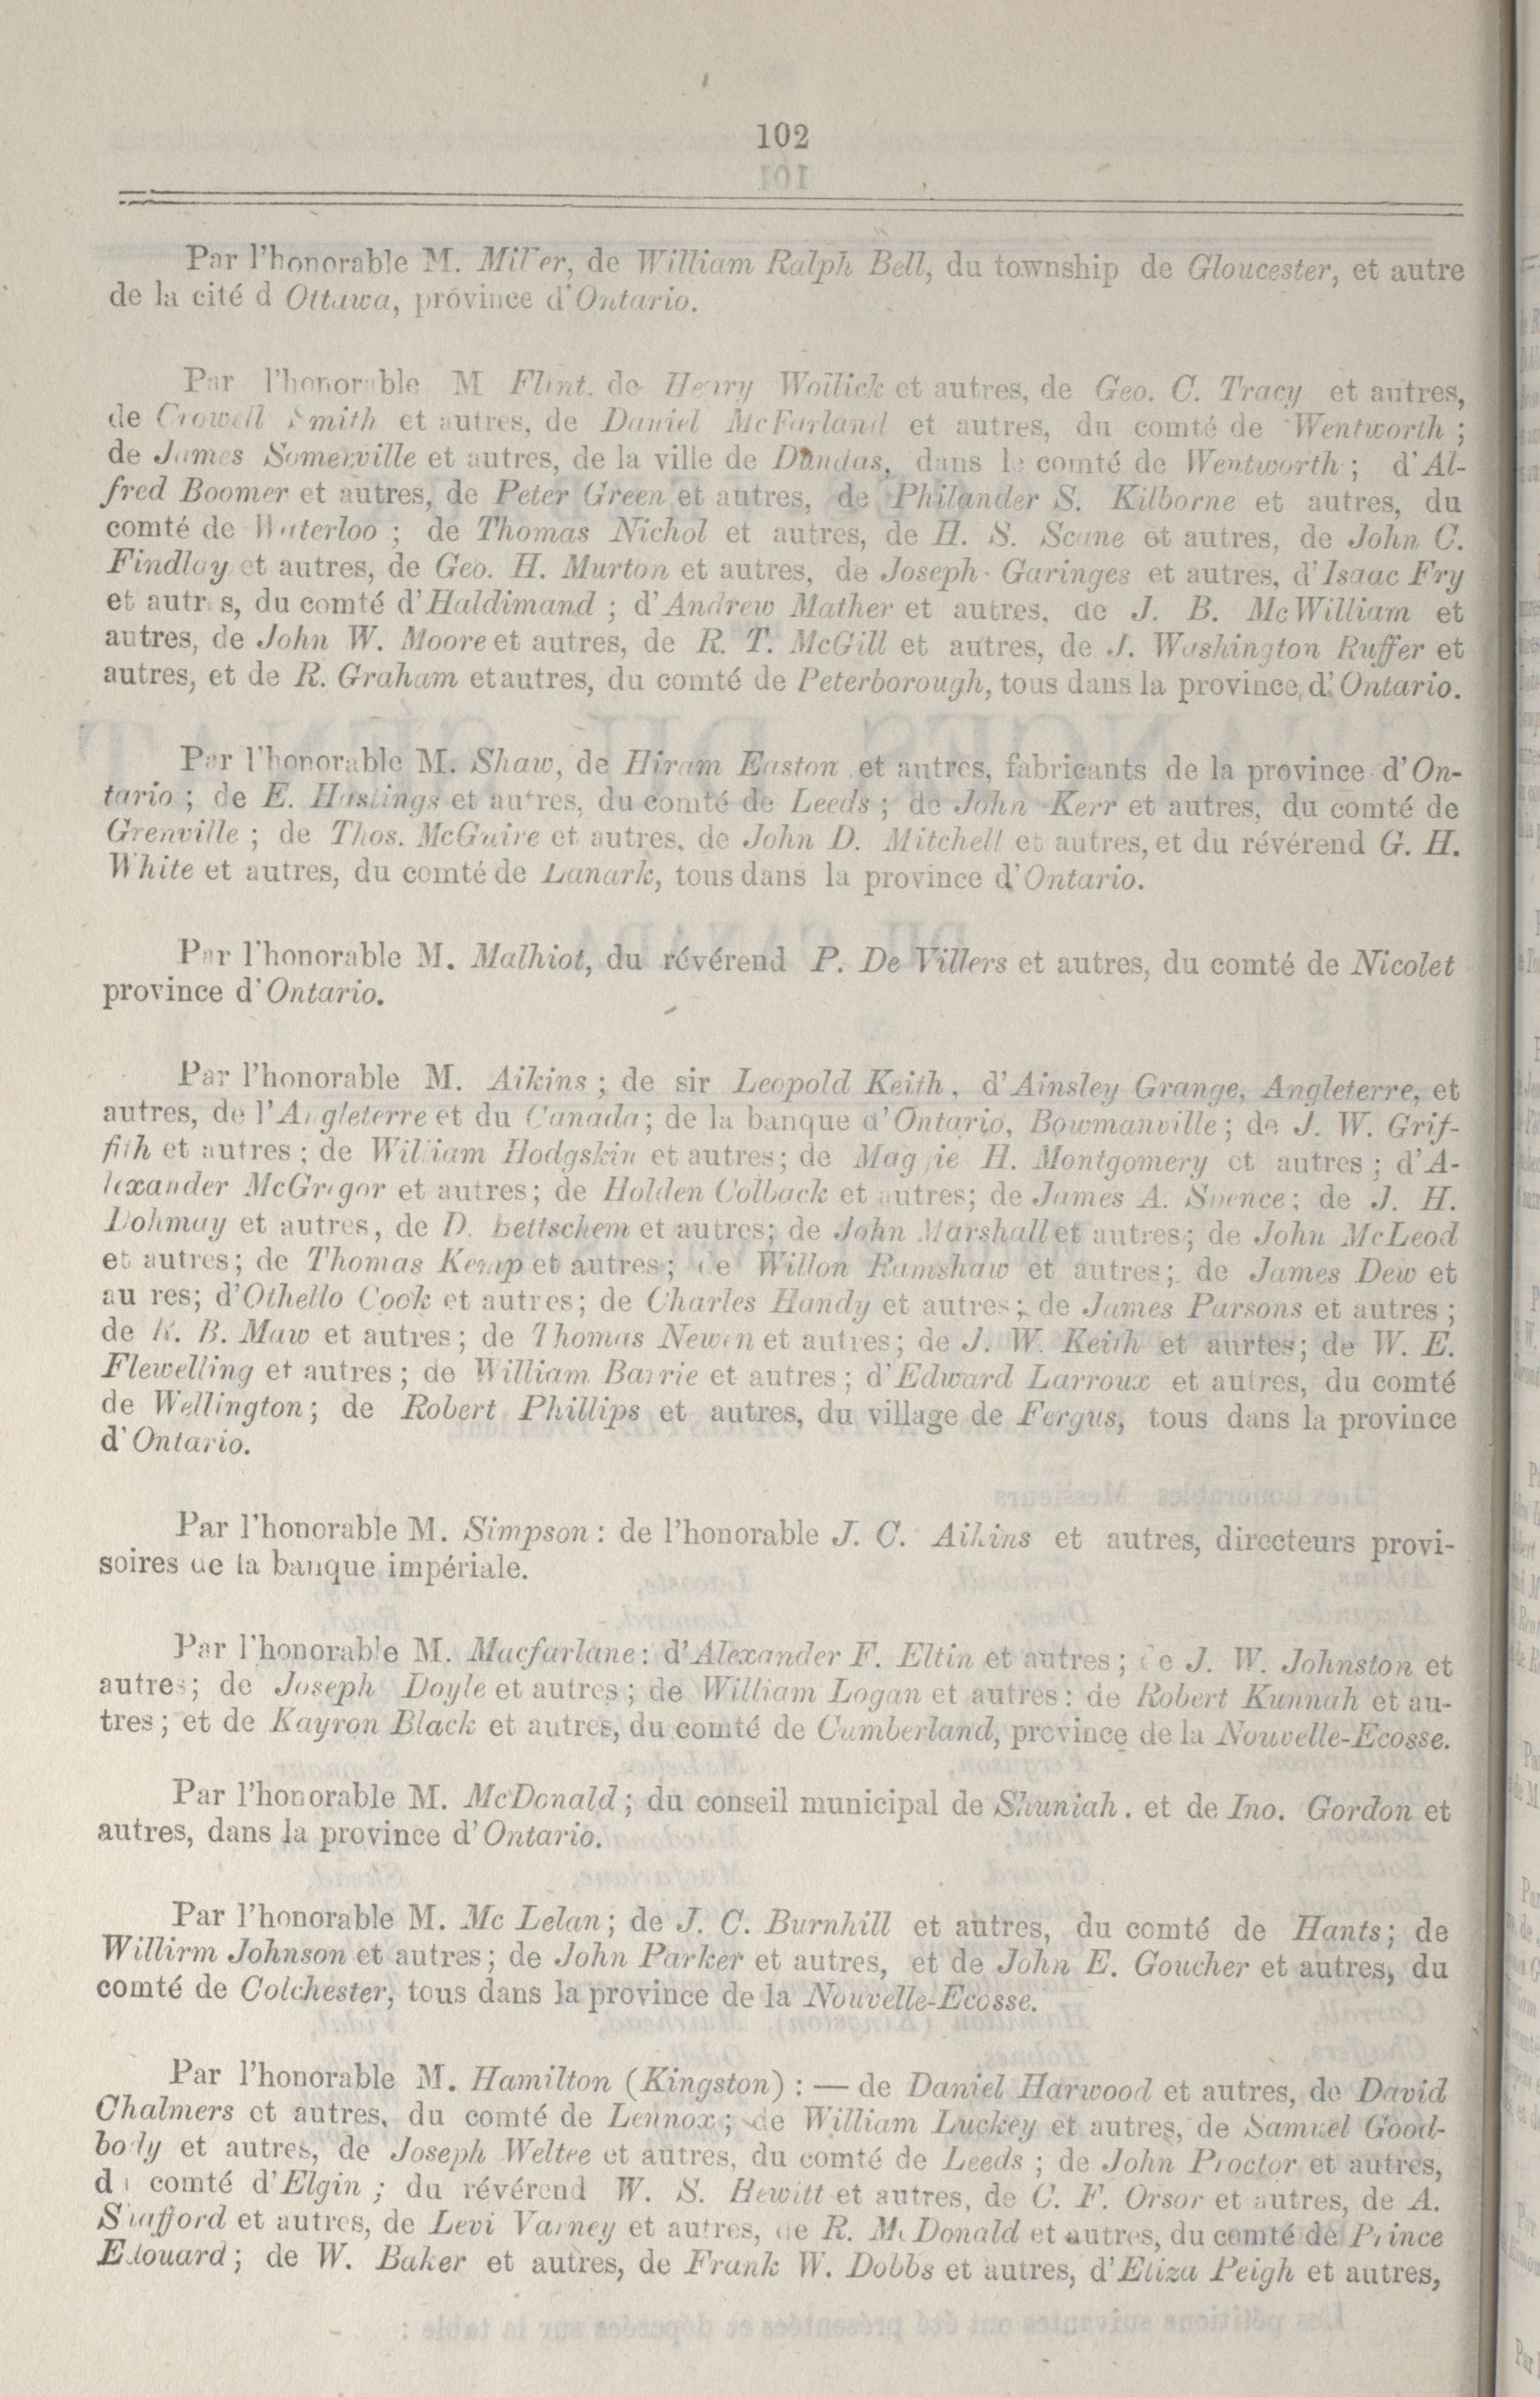 102
Par l'honorable M. Miller, de William Ralph Bell, du township de Gloucester, et autre
de la cité d Ottawa, province d'Ontario.
Par l'honorable M Flint. de Henry Wollick et autres, de Geo. C. Tracy et autres,
de Crowell Smith et autres, de Daniel McFarland et autres, du comté de Wentworth ;
de James Somerville et autres, de la ville de Dundas, dans le comté de Wentworth ; d'Al-
fred Boomer et autres, de Peter Green et autres, de Philander S. Kilborne et autres, du
comté de Waterloo ; de Thomas Nichol et autres, de H. S. Scane et autres, de John C.
Findlay et autres, de Geo. H. Murton et autres, de Joseph Garinges et autres, d'Isaac Fry
et autres, du comté d'Haldimand ; d'Andrew Mather et autres, de J. B. McWilliam et
autres, de John W. Moore et autres, de R. T. McGill et autres, de J. Washington Ruffer et
autres, et de R. Graham et autres, du comté de Peterborough, tous dans la province d'Ontario.
Par l'honorable M. Shaw, de Hiram Easton et autres, fabricants de la province d'On-
tario ; de E. Hastings et autres, du comté de Leeds ; de John Kerr et autres, du comté de
Grenville ; de Thos. McGuire et autres, de John D. Mitchell et autres, et du révérend G. H.
White et autres, du comté de Lanark, tous dans la province d'Ontario.
Par l'honorable M. Malhiot, du révérend P. De Villers et autres, du comté de Nicolet
province d'Ontario.
Par l'honorable M. Aikins ; de sir Leopold Keith, d'Ainsley Grange, Angleterre, et
autres, de l'Angleterre et du Canada; de la banque d'Ontario, Bowmanville; de J. W. Grif-
fith et autres ; de William Hodgskin et autres; de Maggie H. Montgomery et autres ; d'A-
lexander McGregor et autres; de Holden Colback et autres; de James A. Spence; de J. H.
Dohmay et autres, de D. Bettschem et autres; de John Marshall et autres; de John McLeod
et autres; de Thomas Kemp et autres; de Willon Ramshaw et autres; de James Dew et
au res; d'Othello Cook et autres; de Charles Handy et autres; de James Parsons et autres ;
de R. B. Maw et autres; de Thomas Newen et autres; de J. W. Keith et aurtes; de W. E.
Flewelling et autres ; de William Barrie et autres ; d'Edward Larroux et autres, du comté
de Wellington; de Robert Phillips et autres, du village de Fergus, tous dans la province
d'Ontario.
Par l'honorable M. Simpson : de l'honorable J. C. Aikins et autres, directeurs provi-
soires de la banque impériale.
Par l'honorable M. Macfarlane: d'Alexander F. Eltin et autres ; de J. W. Johnston et
autres; de Joseph Doyle et autres ; de William Logan et autres: de Robert Kunnah et au-
tres ; et de Kayron Black et autres, du comté de Cumberland, province de la Nouvelle-Ecosse.
Par l'honorable M. McDonald ; du conseil municipal de Shuniah. et de Ino. Gordon et
autres, dans la province d'Ontario.
Par l'honorable M. Mc Lelan ; de J. C. Burnhill et autres, du comté de Hants; de
Willirm Johnson et autres; de John Parker et autres, et de John E. Goucher et autres, du
comté de Colchester, tous dans la province de la Nouvelle-Ecosse.
Par l'honorable M. Hamilton (Kingston) : — de Daniel Harwood et autres, de David
Chalmers et autres, du comté de Lennox ; de William Luckey et autres, de Samuel Good-
body et autres, de Joseph Weltee et autres, du comté de Leeds ; de John Proctor et autres,
du comté d'Elgin ; du révérend W. S. Hewitt et autres, de C. F. Orsor et autres, de A.
Stafford et autres, de Levi Varney et autres, de R. McDonald et autres, du comté de Prince
Edouard ; de W. Baker et autres, de Frank W. Dobbs et autres, d'Eliza Peigh et autres,